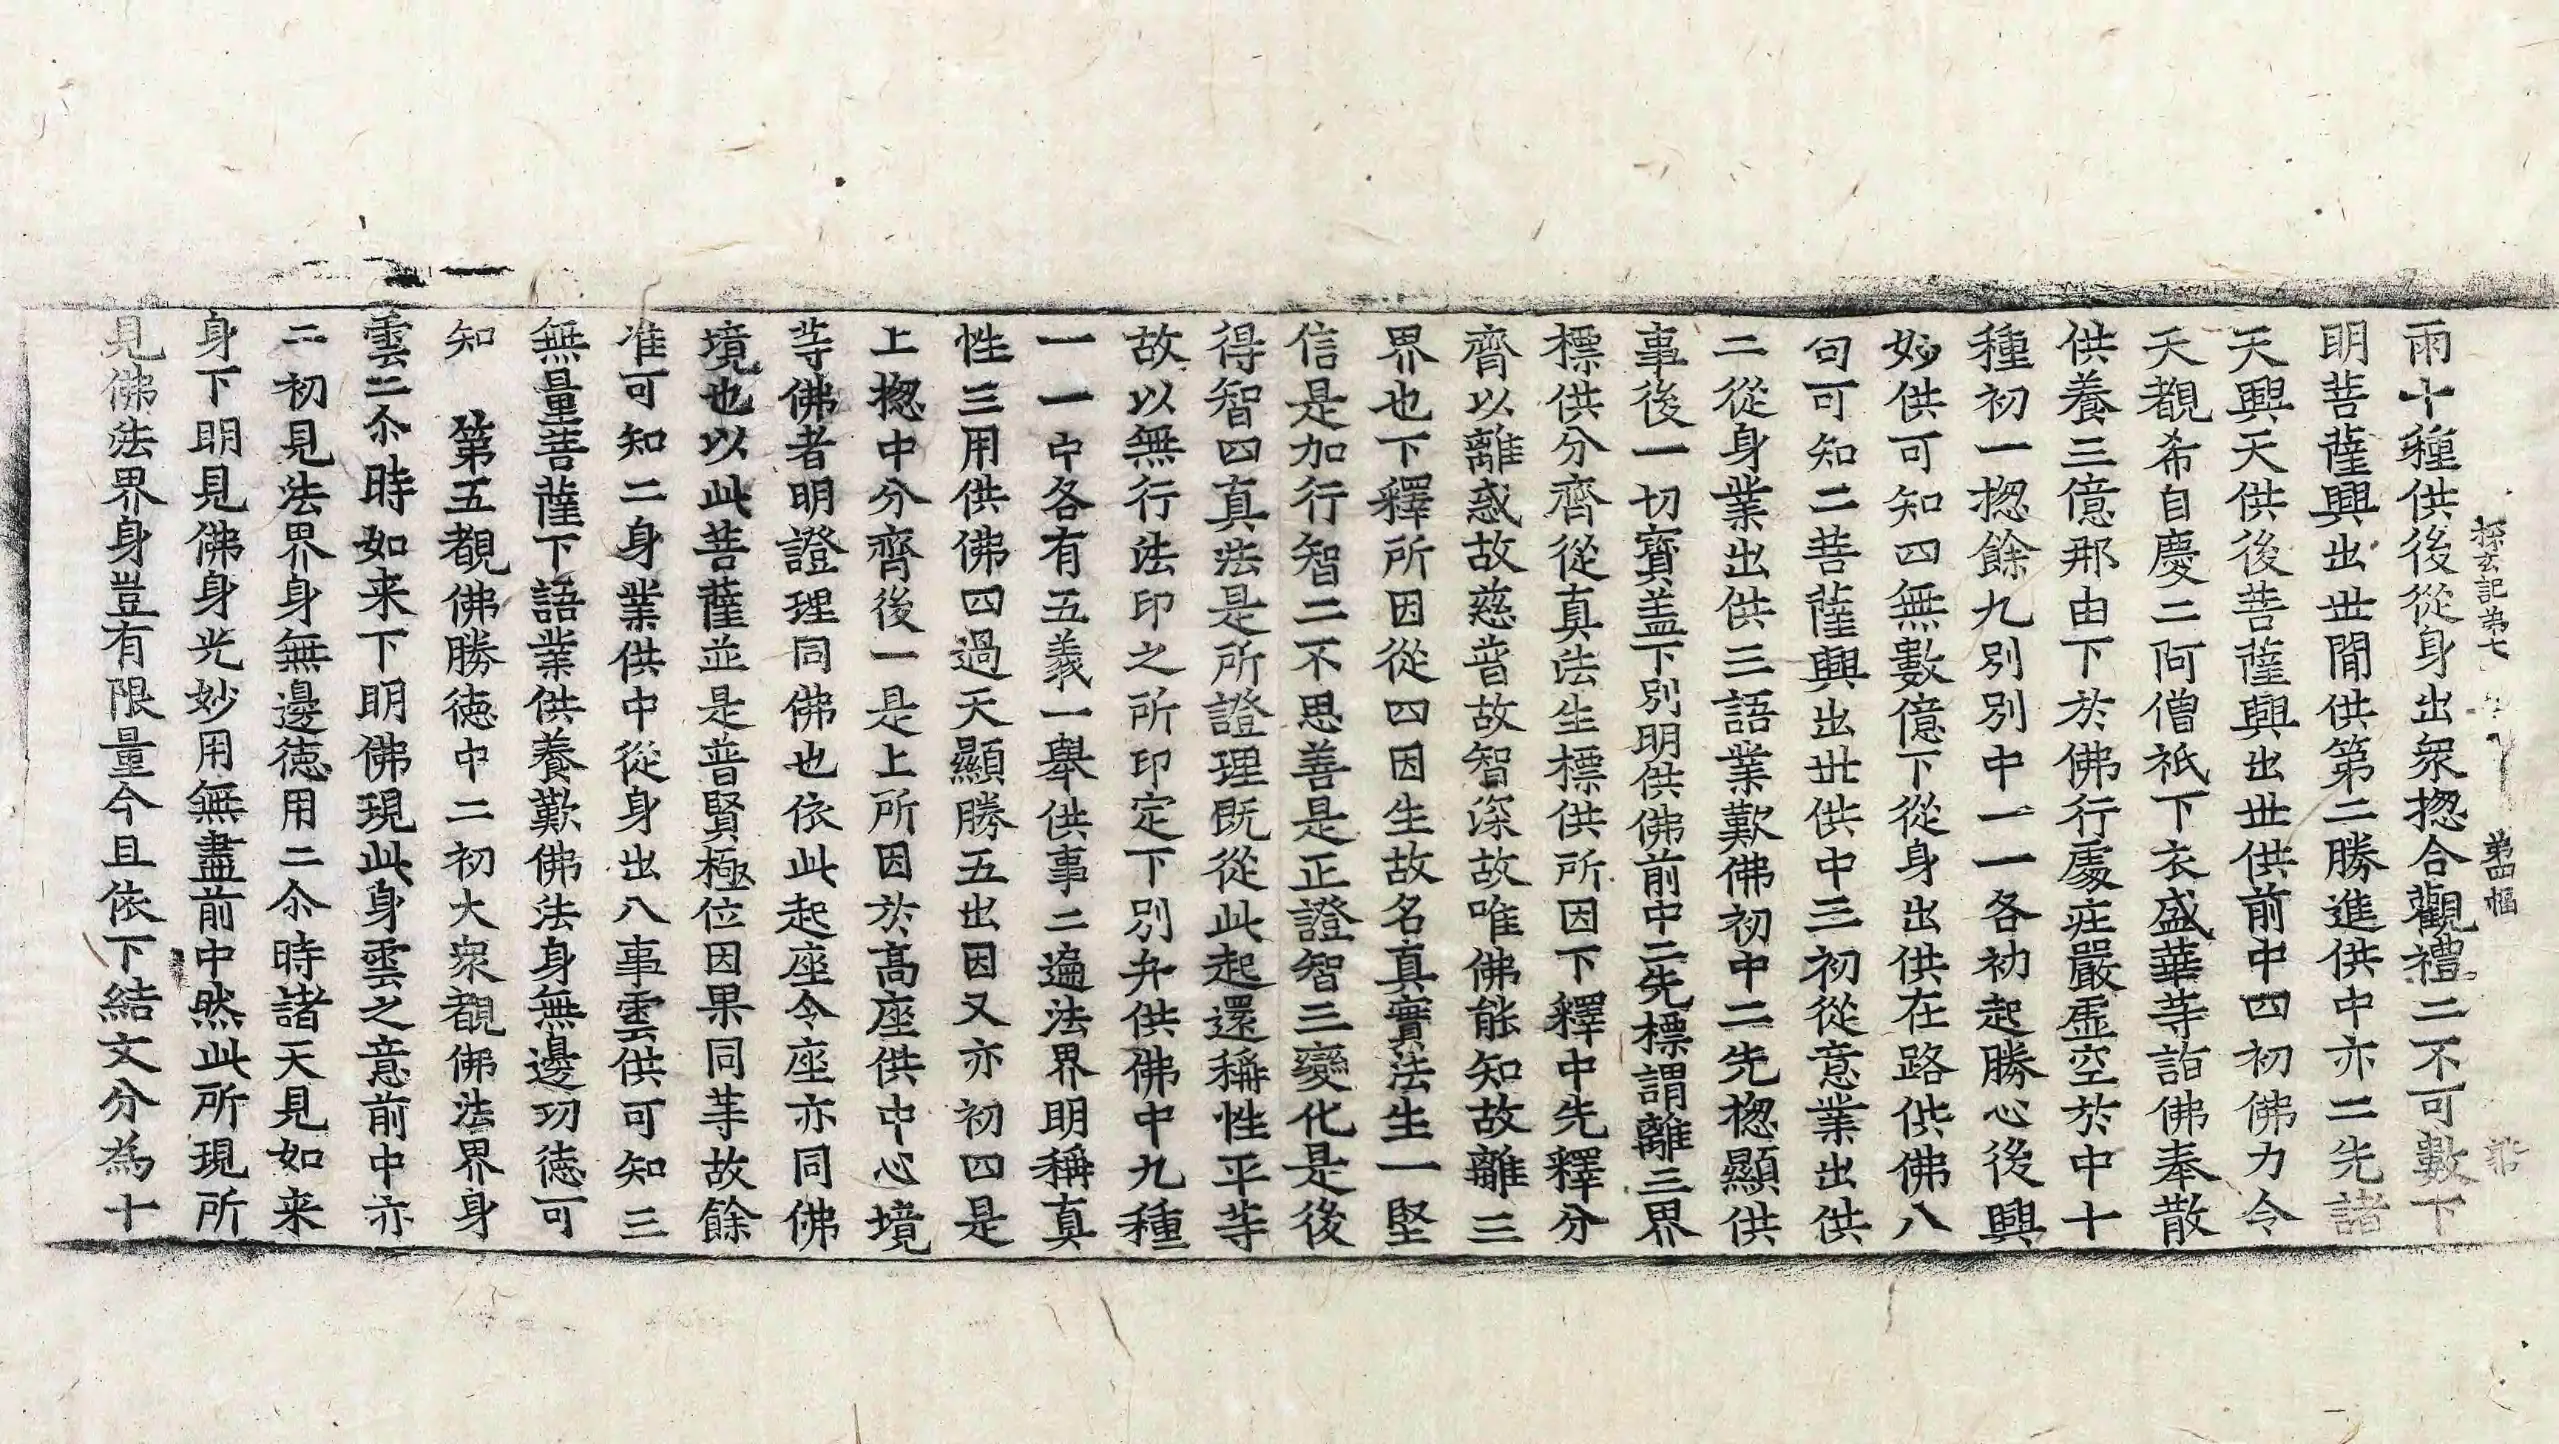 探玄記第七
第四幅
梁
雨十種供後從身出衆揔合觀禮二不可數下
明菩薩興出世間供第二勝進供中亦二先諸
天興天供後菩薩興出世供前中四初佛力令
天覩希自慶二阿僧祇下衣盛華等詣佛奉散
供養三億那由下於佛行處庄嚴虛空於中十
種初一揔餘九別別中一一各初起勝心後興
妙供可知四無數億下從身出供在路供佛八
句可知二菩薩興出世供中三初從意業出供
二從身業出供三語業歎佛初中二先揔顯供
事後一切寶盖下別明供佛前中二先標謂離三界
標供分齊從真法生標供所因下釋中先釋分
齊以離惑故慈普故智深故唯佛能知故離三
界也下釋所因從四因生故名真實法生一堅
信是加行智二不思善是正證智三變化是後
得智四真法是所證理既從此起還稱性平等
故以無行法印之所印定下別弁供佛中九種
一一中各有五義一舉供事二遍法界明稱真
性三用供佛四過天顯勝五出因又亦初四是
上揔中分齊後一是上所因於高座供中心境
等佛者明證理同佛也依此起座令座亦同佛
境也以此菩薩並是普賢極位因果同等故餘
准可知二身業供中從身出八事雲供可知三
無量菩薩下語業供養歎佛法身無邊功徳可
知　第五覩佛勝徳中二初大衆覩佛法界身
雲二尒時如来下明佛現此身雲之意前中亦
二初見法界身無邊徳用二尒時諸天見如来
身下明見佛身光妙用無盡前中然此所現所
見佛法界身豈有限量今且依下結文分為十